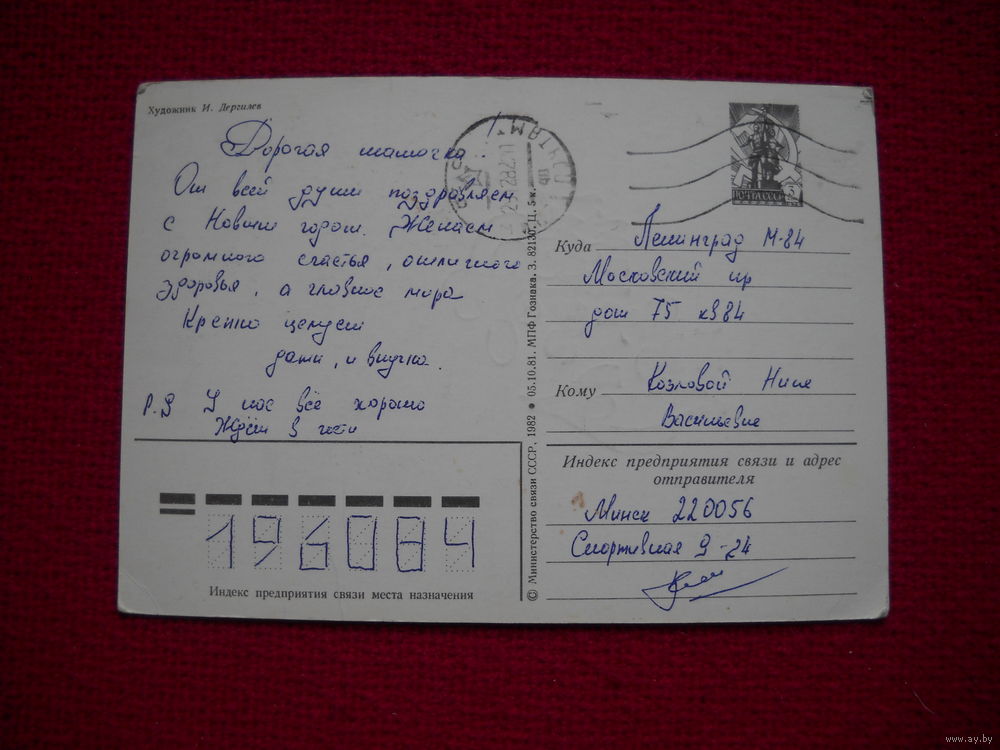 Художник И. Дергилев
Дорогая мамочка
От всей души поздравляем
с Новым годом. Желаем
огромного счастья, отличного
здоровья, а главное мира
Крепко целуем
дети, и внучка.
P.S У нас всё хорошо
Ждём в гости
196084
Индекс предприятия связи места назначения
© Министерство связи СССР, 1982 • 05.10.81. МПФ Гознака. З. 82130. Ц. 5 к.
ПОЧТА СССР
Куда Ленинград М-84
Московский пр
дом 75 кв 84
Кому Козловой Нине
Васильевне
Индекс предприятия связи и адрес
отправителя
Минск 220056
Спортивная 9-24
www.ay.by